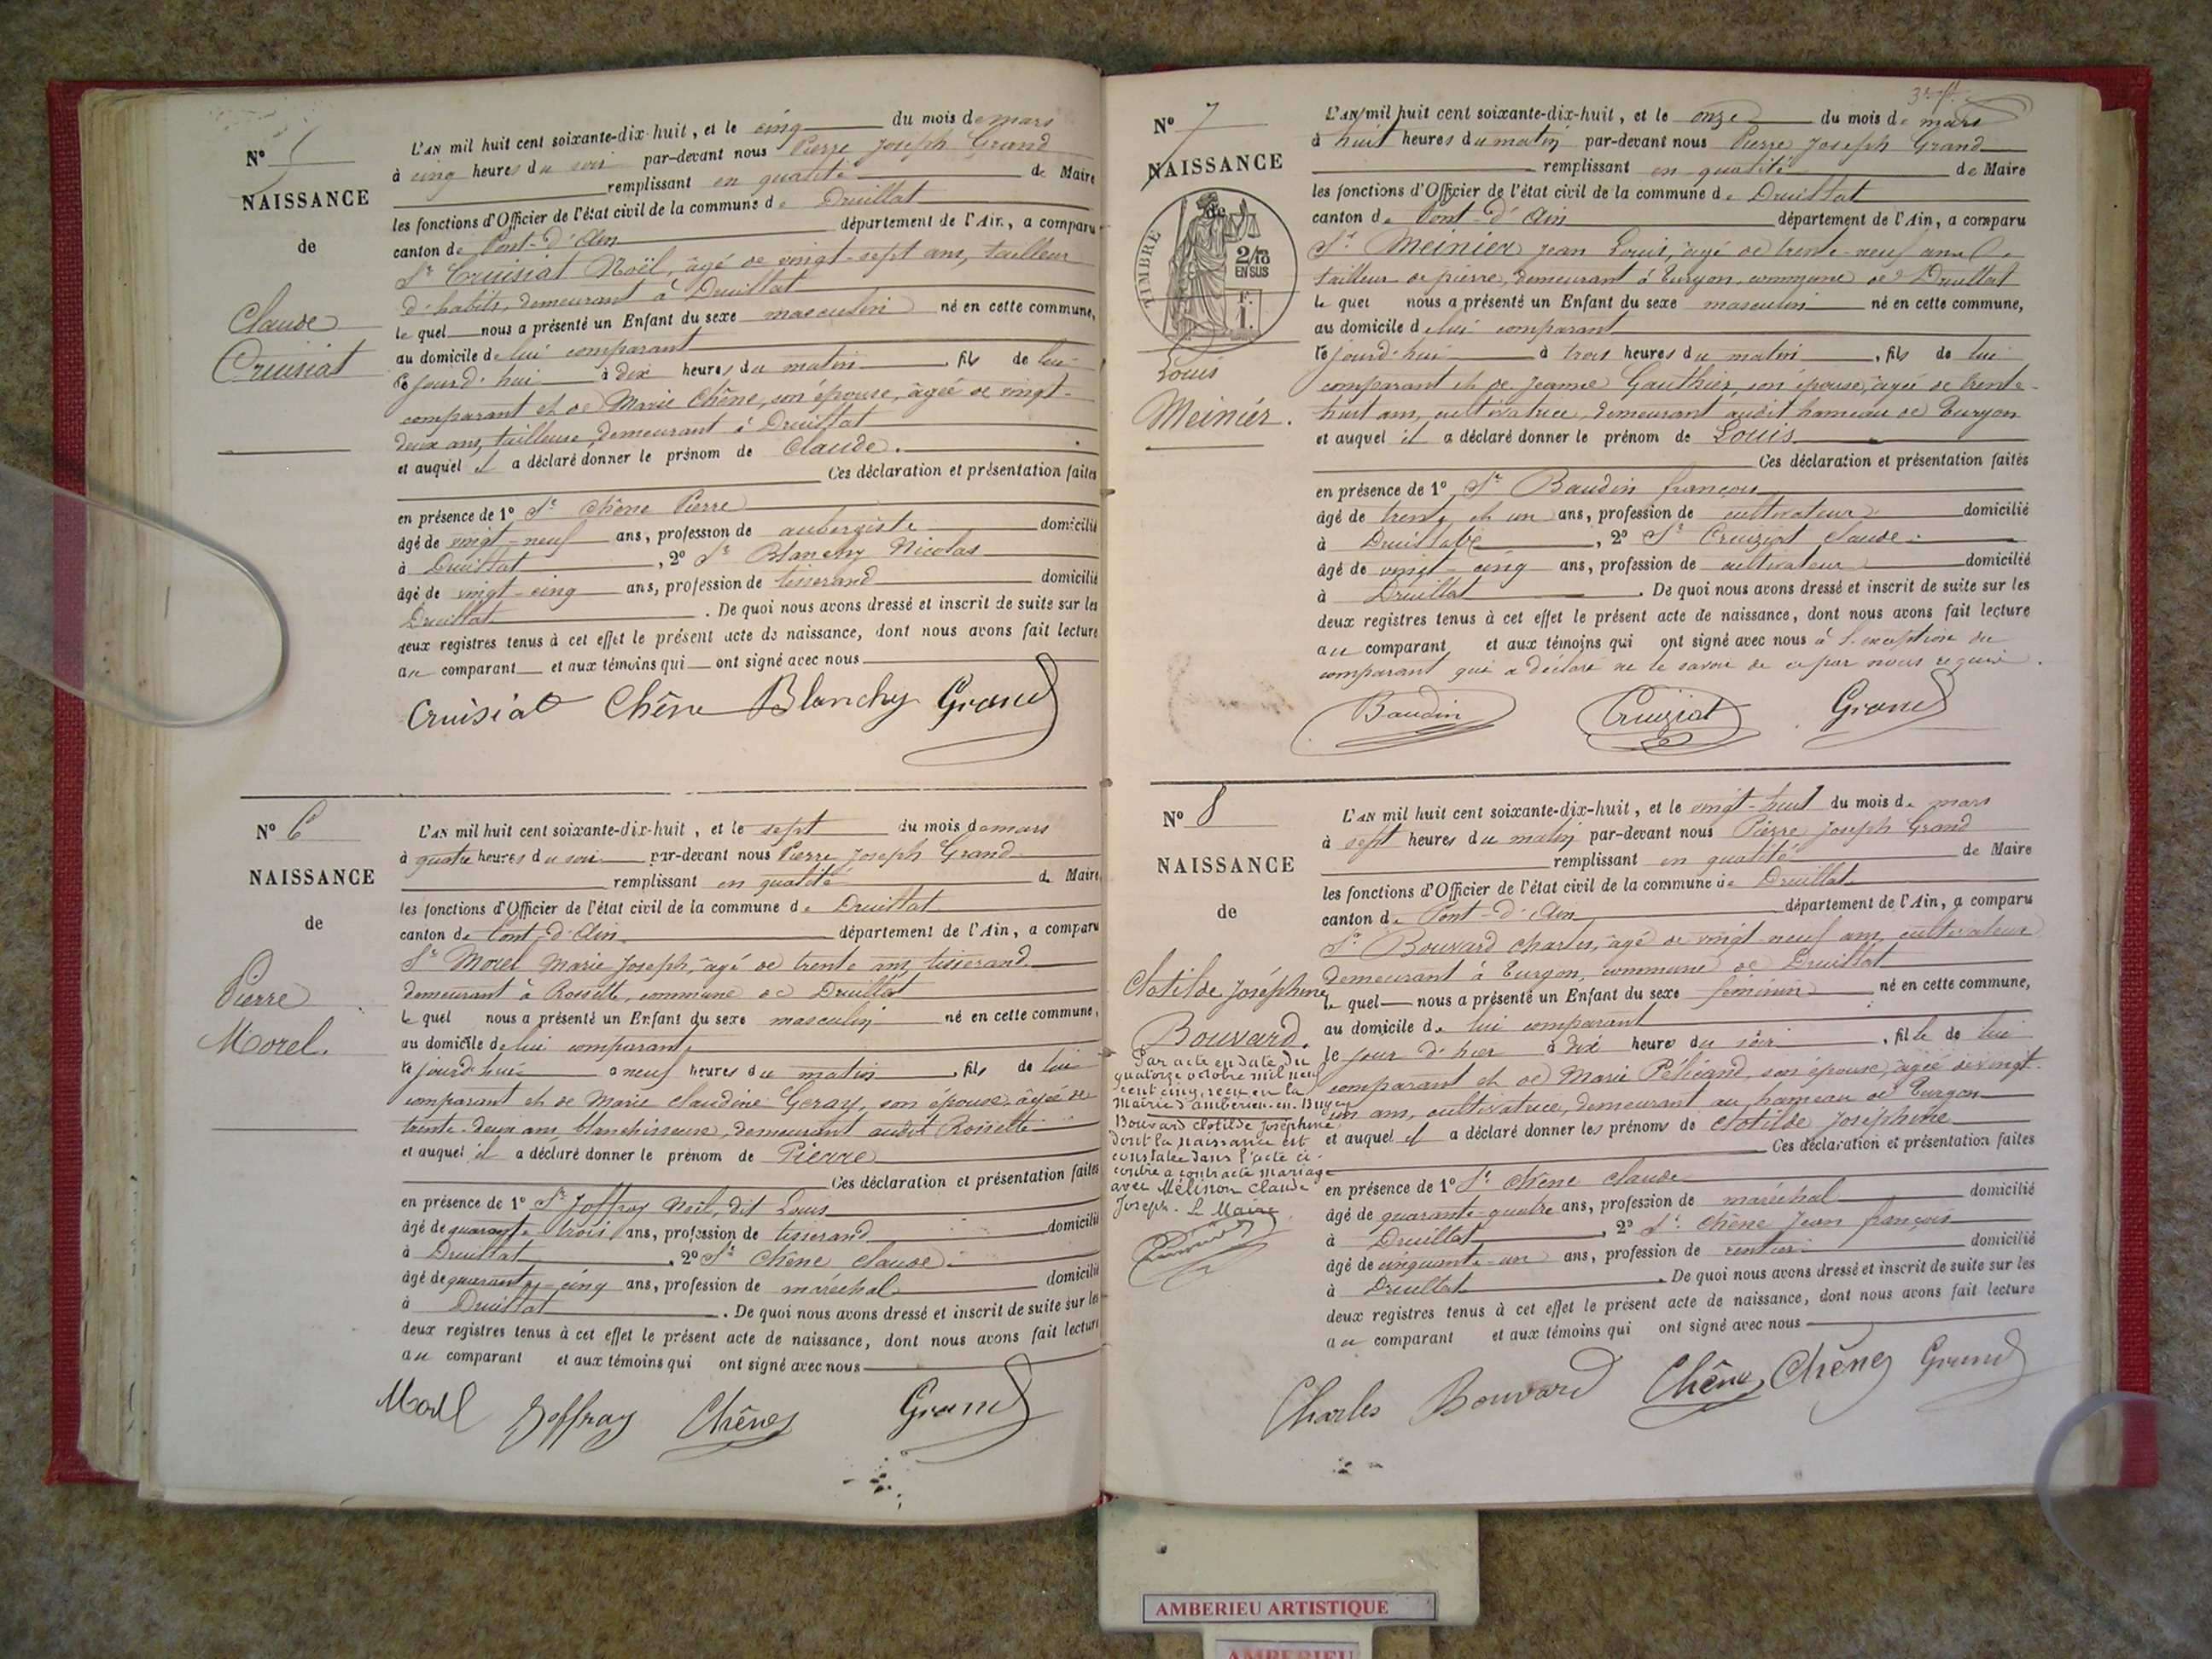 N° 5
NAISSANCE
de
Claude
Cruisiat
L'AN mil huit cent soixante-dix-huit, et le cinq du mois de mars
à cinq heures du soir par-devant nous Pierre Joseph Grand
remplissant en qualité de Maire
les fonctions d'Officier de l'état civil de la commune de Druillat
canton de Pont-d'Ain département de l'Ain, a comparu
Sr Cruisiat Noël, âgé de vingt-sept ans, tailleur
d'habits, demeurant à Druillat
le quel nous a présenté un Enfant du sexe masculin né en cette commune,
au domicile de lui comparant
ce jourd'hui à dix heures du matin, fils de lui
comparant et de Marie Chêne, son épouse, âgée de vingt-
deux ans, tailleuse, demeurant à Druillat
et auquel il a déclaré donner le prénom de Claude.
Ces déclaration et présentation faites
en présence de 1° Sr Chêne Pierre
âgé de vingt-neuf ans, profession de aubergiste domicilié
à Druillat, 2° Sr Blanchy Nicolas
âgé de vingt-cinq ans, profession de tisserand domicilié
Druillat. De quoi nous avons dressé et inscrit de suite sur les
deux registres tenus à cet effet le présent acte de naissance, dont nous avons fait lecture
au comparant et aux témoins qui ont signé avec nous
Cruisiat Chêne Blanchy Grand
N° 6
NAISSANCE
de
Pierre
Morel.
L'AN mil huit cent soixante-dix-huit, et le sept du mois de mars
à quatre heures du soir par-devant nous Pierre Joseph Grand
remplissant en qualité de Maire
les fonctions d'Officier de l'état civil de la commune de Druillat
canton de Pont-d'Ain département de l'Ain, a comparu
Sr Morel Marie Joseph, âgé de trente ans, tisserand
demeurant à Rossette, commune de Druillat
le quel nous a présenté un Enfant du sexe masculin né en cette commune,
au domicile de lui comparant
ce jourd'hui à neuf heures du matin, fils de lui
comparant et de Marie Claudine Geray, son épouse, âgée de
trente-deux ans, blanchisseuse, demeurant audit Rossette
et auquel il a déclaré donner le prénom de Pierre
Ces déclaration et présentation faites
en présence de 1° Sr Joffray Noël, dit Louis
âgé de quarante-trois ans, profession de tisserand domicilié
à Druillat, 2° Sr Chêne Claude
âgé de quarante-cinq ans, profession de maréchal domicilié
à Druillat. De quoi nous avons dressé et inscrit de suite sur les
deux registres tenus à cet effet le présent acte de naissance, dont nous avons fait lecture
au comparant et aux témoins qui ont signé avec nous
Morel Joffray Chêne Grand
N° 7
NAISSANCE
de
TIMBRE
2/10
EN SUS
Louis
Meinier.
L'AN mil huit cent soixante-dix-huit, et le onze du mois de mars
à huit heures du matin par-devant nous Pierre Joseph Grand
remplissant en qualité de Maire
les fonctions d'Officier de l'état civil de la commune de Druillat
canton de Pont-d'Ain département de l'Ain, a comparu
Sr Meinier Jean Louis, âgé de trente-neuf ans
tailleur de pierre, demeurant à Turgon, commune de Druillat
le quel nous a présenté un Enfant du sexe masculin né en cette commune,
au domicile de lui comparant
ce jourd'hui à trois heures du matin, fils de lui
comparant et de Jeanne Gauthier, son épouse, âgée de trente-
huit ans, cultivatrice, demeurant audit hameau de Turgon
et auquel il a déclaré donner le prénom de Louis
Ces déclaration et présentation faites
en présence de 1° Sr Baudin françois
âgé de trente et un ans, profession de cultivateur domicilié
à Druillat, 2° Sr Cruiziat Claude
âgé de vingt-cinq ans, profession de cultivateur domicilié
à Druillat. De quoi nous avons dressé et inscrit de suite sur les
deux registres tenus à cet effet le présent acte de naissance, dont nous avons fait lecture
au comparant et aux témoins qui ont signé avec nous à l'exception du
comparant qui a déclaré ne le savoir de ce par nous requis.
Baudin Cruiziat Grand
N° 8
NAISSANCE
de
Clotilde Joséphine
Bouvard.
Par acte en date du
quatorze octobre mil neuf
cent cinq, reçu en la
mairie d'Ambérieu-en-Bugey
Bouvard Clotilde Joséphine
dont la naissance est
constatée dans l'acte ci-
contre a contracté mariage
avec Mélinon Claude
Joseph. Le Maire
L'AN mil huit cent soixante-dix-huit, et le vingt-huit du mois de mars
à sept heures du matin par-devant nous Pierre Joseph Grand
remplissant en qualité de Maire
les fonctions d'Officier de l'état civil de la commune de Druillat
canton de Pont-d'Ain département de l'Ain, a comparu
Sr Bouvard Charles, âgé de vingt-neuf ans, cultivateur
demeurant à Turgon, commune de Druillat
le quel nous a présenté un Enfant du sexe féminin né en cette commune,
au domicile de lui comparant
le jour d'hier à dix heures du soir, fille de lui
comparant et de Marie Péliciand, son épouse, âgée de vingt-
un ans, cultivatrice, demeurant au hameau de Turgon
et auquel il a déclaré donner les prénoms de Clotilde Joséphine
Ces déclaration et présentation faites
en présence de 1° Sr Chêne Claude
âgé de quarante-quatre ans, profession de maréchal domicilié
à Druillat, 2° Sr Chêne Jean françois
âgé de cinquante-un ans, profession de rentier domicilié
à Druillat. De quoi nous avons dressé et inscrit de suite sur les
deux registres tenus à cet effet le présent acte de naissance, dont nous avons fait lecture
au comparant et aux témoins qui ont signé avec nous
Charles Bouvard Chêne Chêne Grand
AMBERIEU ARTISTIQUE
AMBERIEU